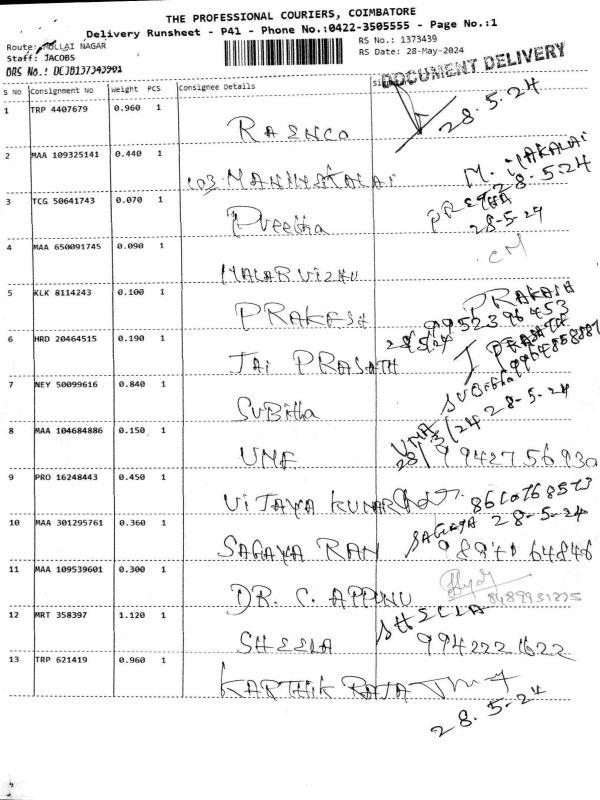 THE PROFESSIONAL COURIERS, COIMBATORE
Delivery Runsheet - P41 - Phone No.:0422-3505555 - Page No.:1
Route: MOLLAI NAGAR
RS No.: 1373439
Staff: JACOBS
RS Date: 28-May-2024
DRS No.: DCJB137343901
DOCUMENT DELIVERY
S No Consignment No Weight PCS Consignee Details
1 TRP 4407679 0.960 1
RASNCO 28.5.24
2 MAA 109325141 0.440 1
M. MAKALAI
28-5-24
3 TCG 50641743 0.070 1
PREETHA
Preetha 28-5-24
4 MAA 650091745 0.090 1
CM
MALAR VIZHU
5 KLK 8114243 0.100 1
PRAKASH
PRAKESH 9952396453
6 HRD 20464515 0.190 1
28/5/24 J PRASATH
JAI PRASATH
7 NEY 50099616 0.840 1
SUBitha
SUBitha 28-5-24
8 MAA 104684886 0.150 1
UMA 28/5/24
UMA
9 PRO 16248443 0.450 1
VIJAYA KUMAR
10 MAA 301295761 0.360 1
SAGAYA 28-5-24
SAGAYA RAN
11 MAA 109539601 0.300 1
DR. C. APPUNU 8489931225
12 MRT 358397 1.120 1
SHEELA
SHEELA 9942221622
13 TRP 621419 0.960 1
KARTHIK RAJA
28.5-24